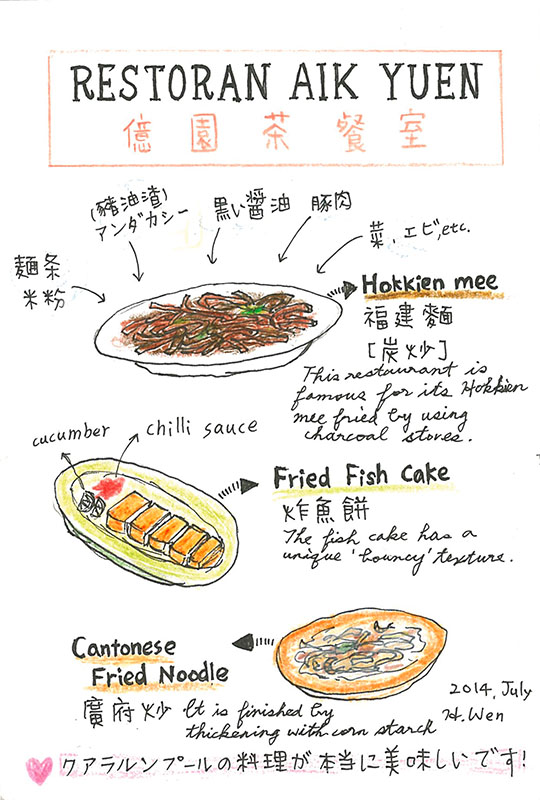 RESTORAN AIK YUEN
億園茶餐室
(豬油渣)
アンダカシー
黒い醤油
豚肉
菜、エビ,etc.
麺条
米粉
Hokkien mee
福建麵
[炭炒]
This restaurant is
famous for its Hokkien
mee fried by using
charcoal stoves.
cucumber
chilli sauce
Fried Fish Cake
炸魚餅
The fish cake has a
unique 'bouncy' texture.
Cantonese
Fried Noodle
廣府炒
It is finished by
thickening with corn starch
2014, July
H.Wen
クアラルンプールの料理が本当に美味しいです!